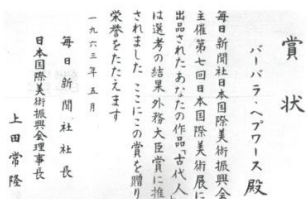 賞状
バーバラ・ヘプワース殿
毎日新聞社日本国際美術振興会
主催第七回日本国際美術展に
出品されたあなたの作品「古代人」
は選考の結果外務大臣賞に推
されました ここにこの賞を贈り
栄誉をたたえます
一九六三年五月
毎日新聞社社長
日本国際美術振興会理事長
上田常隆